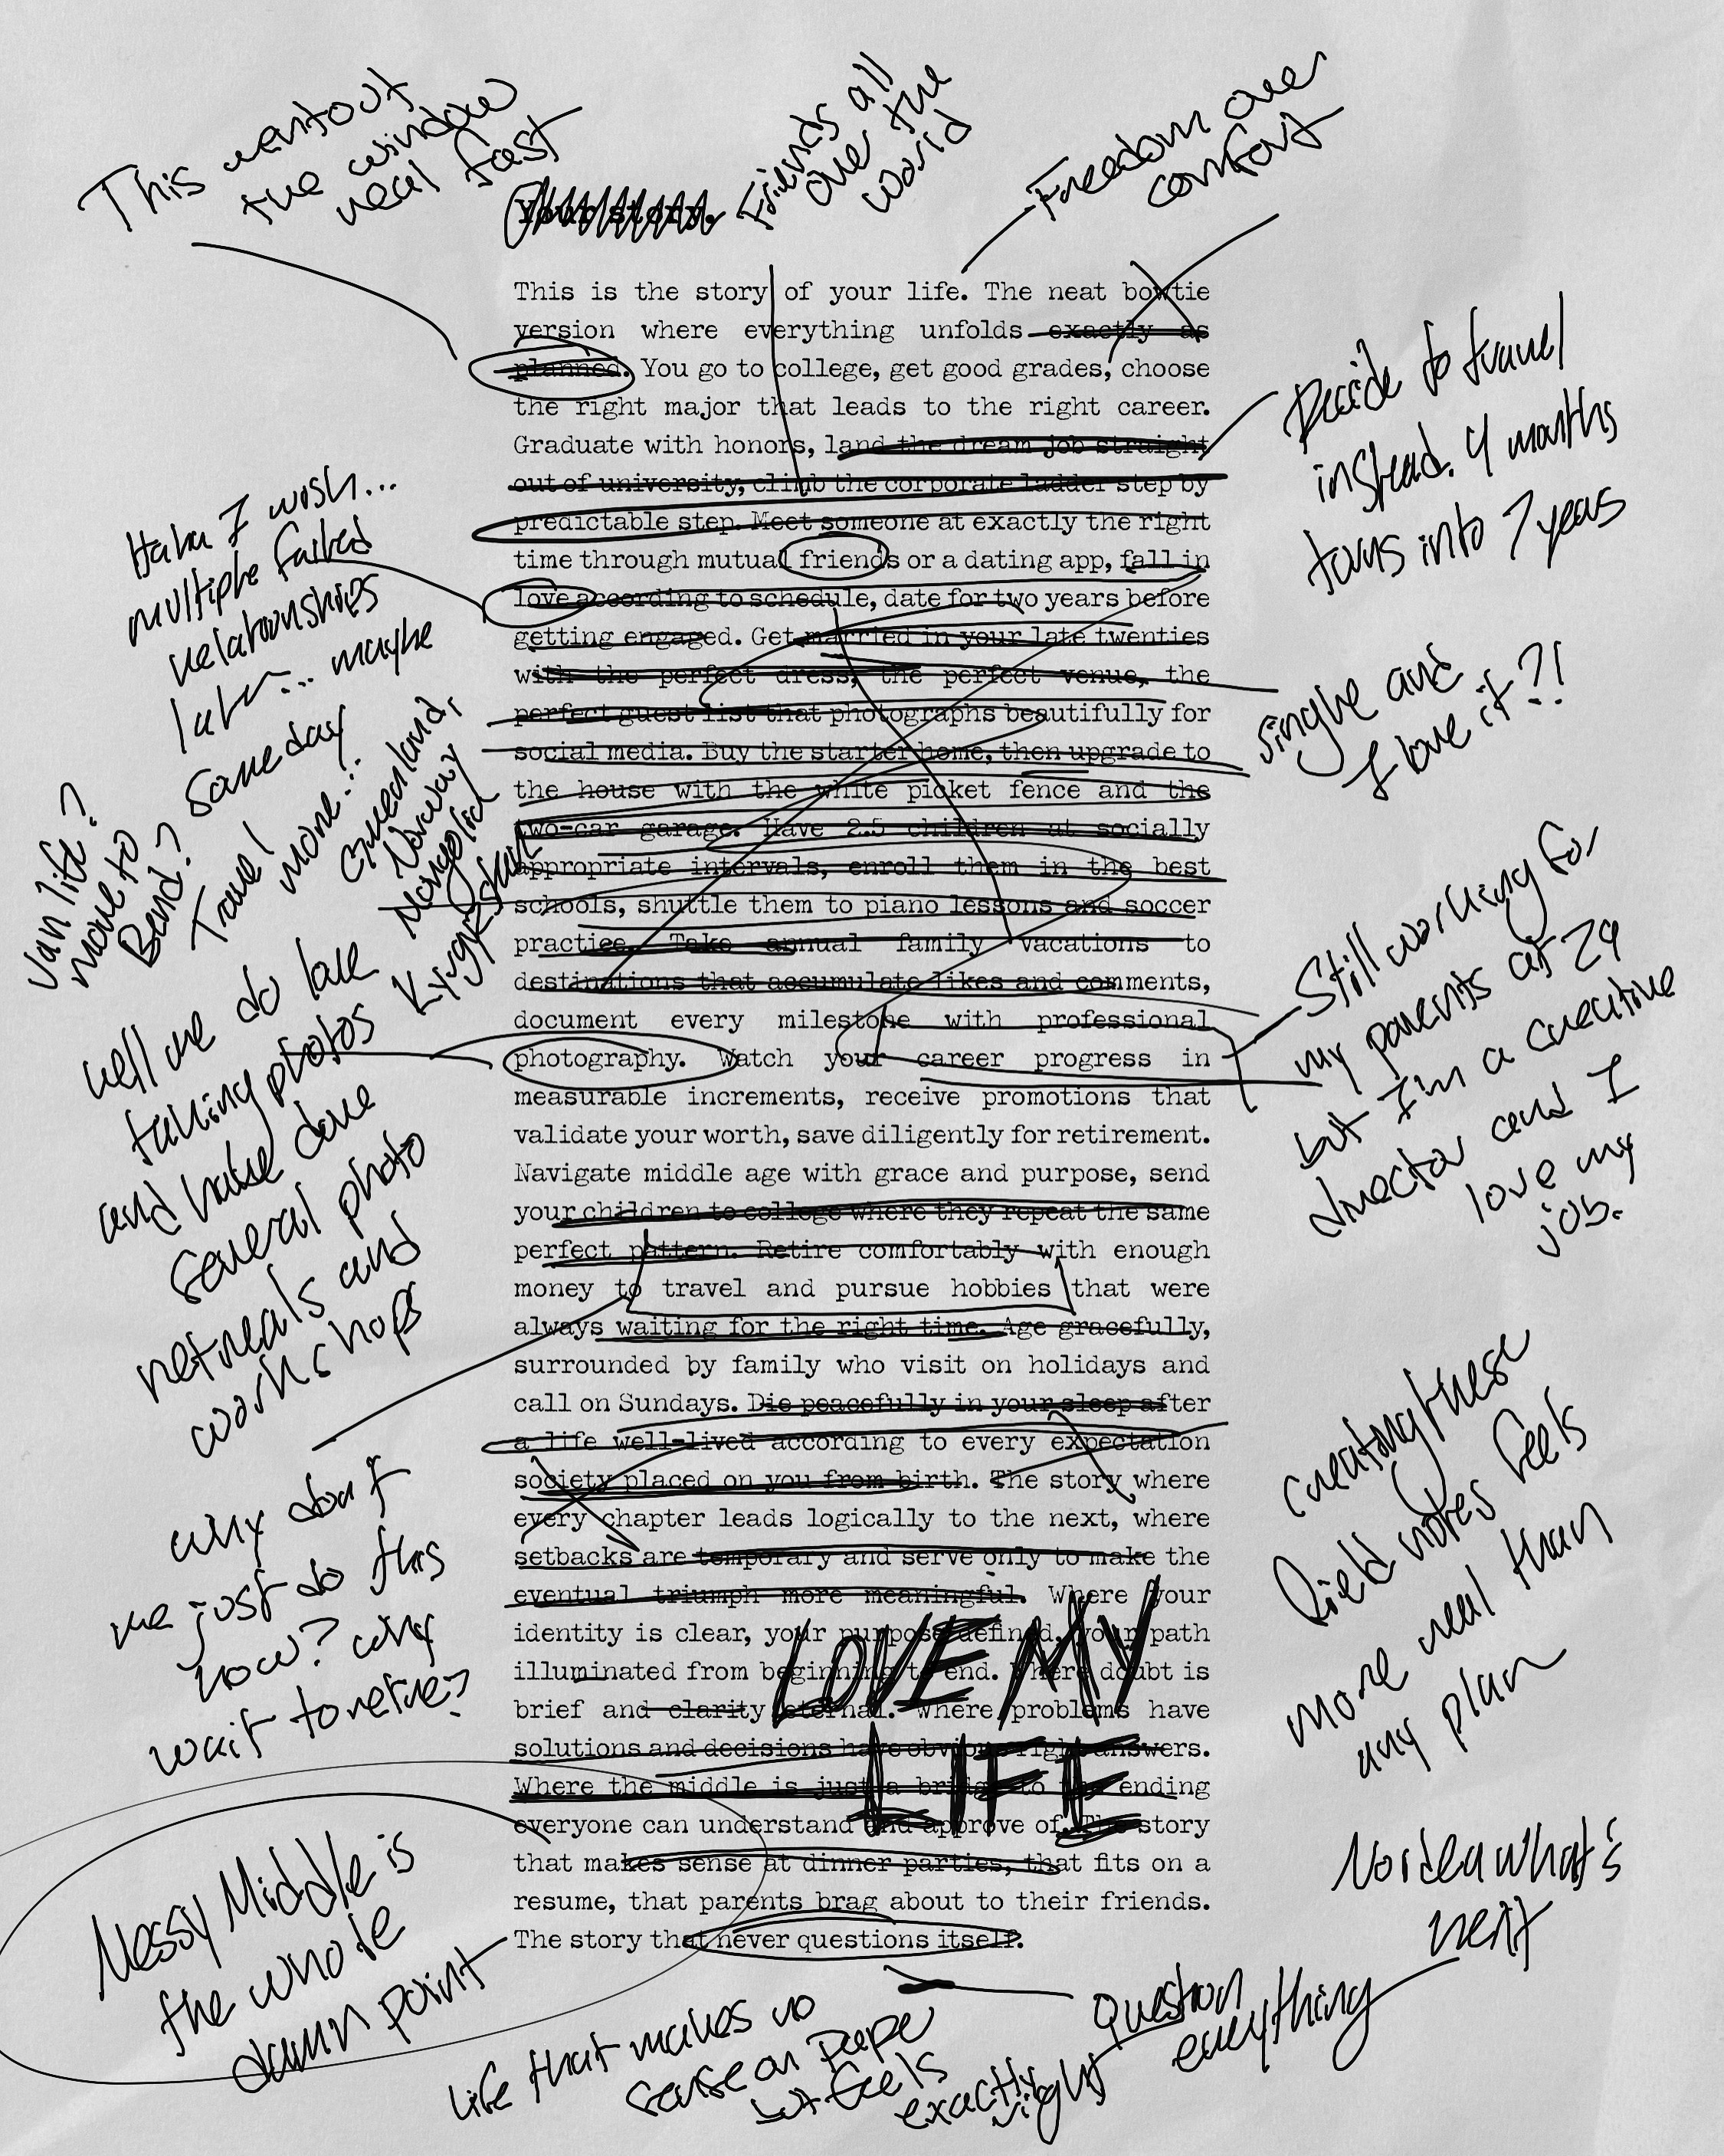 This went out
the window
real fast
Friends all
over the
world
Freedom over
comfort
Your story.
This is the story of your life. The neat bowtie
version where everything unfolds exactly as
planned. You go to college, get good grades, choose
the right major that leads to the right career.
Graduate with honors, land the dream job straight
out of university, climb the corporate ladder step by
predictable step. Meet someone at exactly the right
time through mutual friends or a dating app, fall in
love according to schedule, date for two years before
getting engaged. Get married in your late twenties
with the perfect dress, the perfect venue, the
perfect guest list that photographs beautifully for
social media. Buy the starter home, then upgrade to
the house with the white picket fence and the
two-car garage. Have 2.5 children at socially
appropriate intervals, enroll them in the best
schools, shuttle them to piano lessons and soccer
practice. Take annual family vacations to
destinations that accumulate likes and comments,
document every milestone with professional
photography. Watch your career progress in
measurable increments, receive promotions that
validate your worth, save diligently for retirement.
Navigate middle age with grace and purpose, send
your children to college where they repeat the same
perfect pattern. Retire comfortably with enough
money to travel and pursue hobbies that were
always waiting for the right time. Age gracefully,
surrounded by family who visit on holidays and
call on Sundays. Die peacefully in your sleep after
a life well-lived according to every expectation
society placed on you from birth. The story where
every chapter leads logically to the next, where
setbacks are temporary and serve only to make the
eventual triumph more meaningful. Where your
identity is clear, your purpose defined, your path
illuminated from beginning to end. Where doubt is
brief and clarity eternal. Where problems have
solutions and decisions have obvious right answers.
Where the middle is just a bridge to the ending
everyone can understand and approve of. The story
that makes sense at dinner parties, that fits on a
resume, that parents brag about to their friends.
The story that never questions itself.
LOVE MY
LIFE
Decide to travel
instead. 4 months
turns into 7 years
Haha I wish...
multiple failed
relationships
later... maybe
someday
single and
I love it?!
Van life?
move to
Bend?
Travel
more...
Greenland,
Norway
Mongolia
Kyrgyzstan
Still working for
my parents at 29
but I'm a creative
director and I
love my
job.
well we do love
taking photos
and have done
several photo
retreats and
workshops
why don't
we just do this
now? why
wait to retire?
creating these
field notes feels
more real than
any plan
Messy Middle is
the whole
damn point
No idea what's
next
Question
everything
life that makes no
sense on paper
but feels
exactly
right